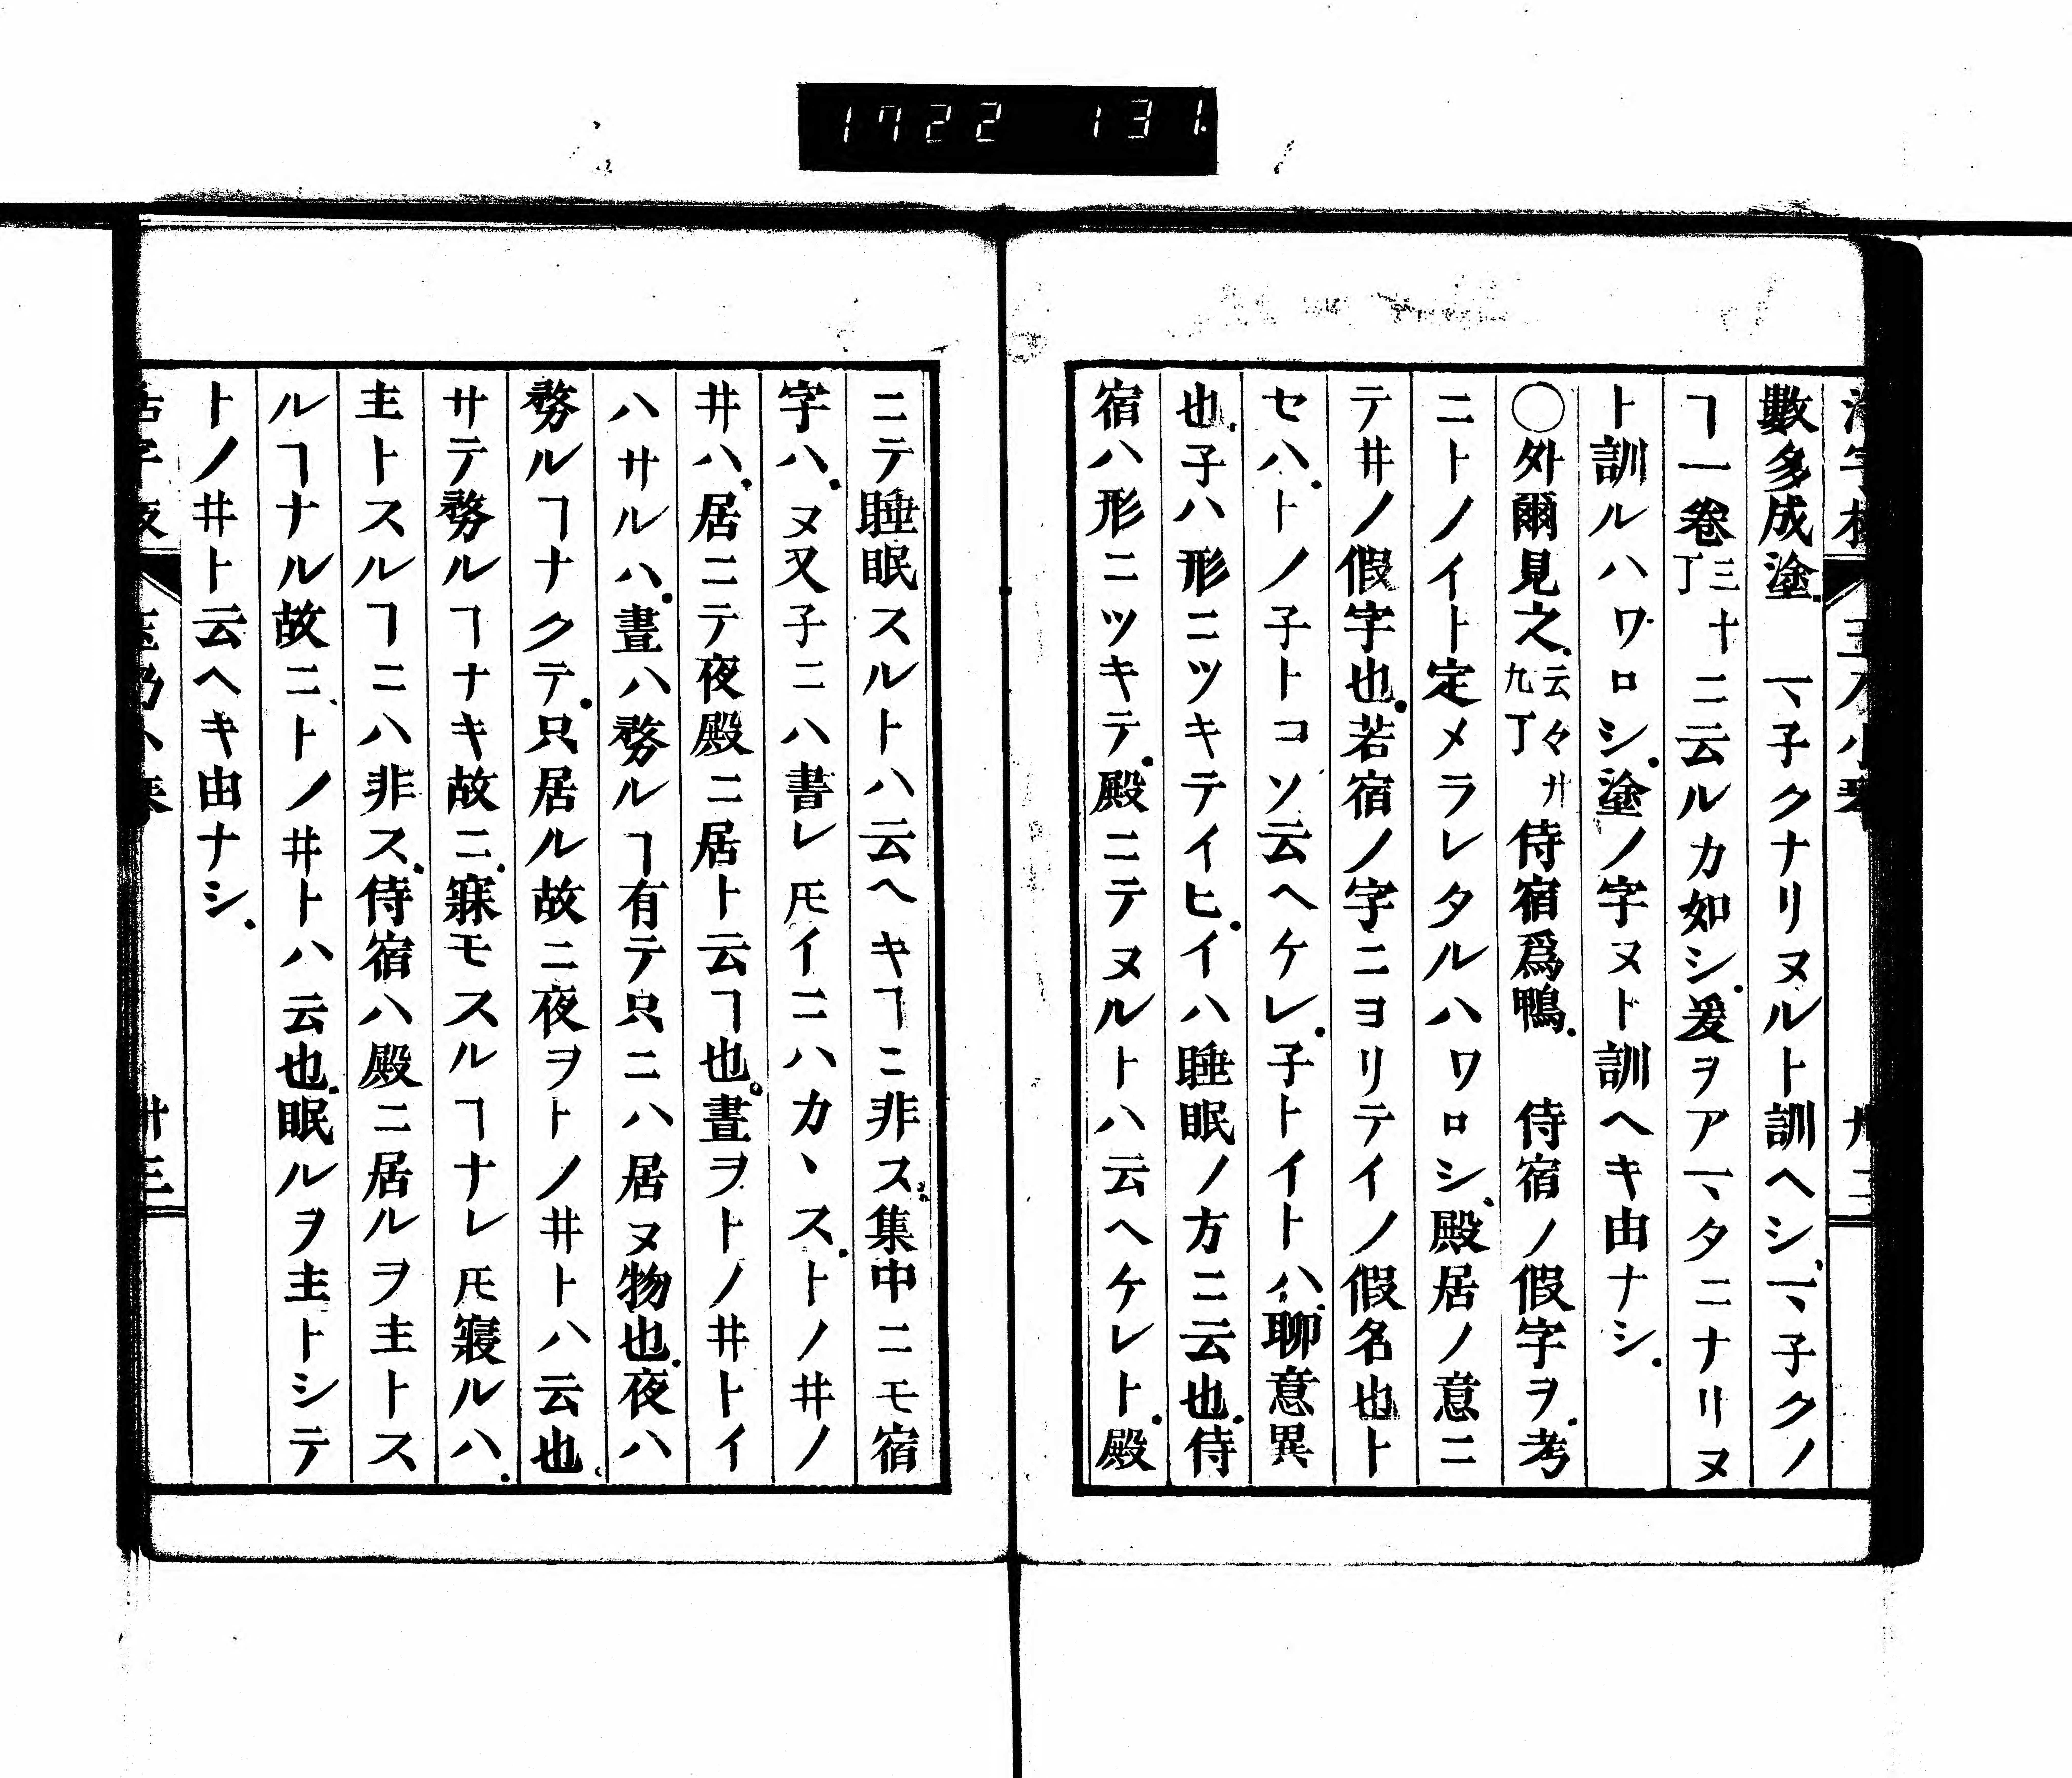 1722 131.
數多成塗。 マ子クナリヌルト訓ヘシ、マ子クノ
ヿ一卷三十丁ニ云ルカ如シ。爰ヲアマタニナリヌ
ト訓ルハワロシ。塗ノ字ヌト訓ヘキ由ナシ。
○外爾見之。云々廿九丁侍宿爲鴨。 侍宿ノ假字ヲ。考
ニトノイト定メラレタルハワロシ、殿居ノ意ニ
テ井ノ假字也。若宿ノ字ニヨリテイノ假名也ト
セハ。トノ子トコソ云ヘケレ。子トイトハ。聊意異
也。子ハ形ニツキテイヒ。イハ睡眠ノ方ニ云也。侍
宿ハ形ニツキテ。殿ニテヌルトハ云ヘケレト。殿
ニテ睡眠スルトハ云ヘキヿニ非ス。集中ニモ宿
字ハ。ヌ又子ニハ書レ𪜈イニハカヽス。トノ井ノ
井ハ。居ニテ夜殿ニ居ト云ヿ也。晝ヲトノ井トイ
ハサルハ。晝ハ務ルヿ有テ只ニハ居ヌ物也。夜ハ
務ルヿナクテ。只居ル故ニ夜ヲトノ井トハ云也。
サテ務ルヿナキ故ニ。寐モスルヿナレ𪜈寢ルハ。
主トスルヿニハ非ス。侍宿ハ殿ニ居ルヲ主トス
ルヿナル故ニ、トノ井トハ云也。眠ルヲ主トシテ
トノ井ト云ヘキ由ナシ。